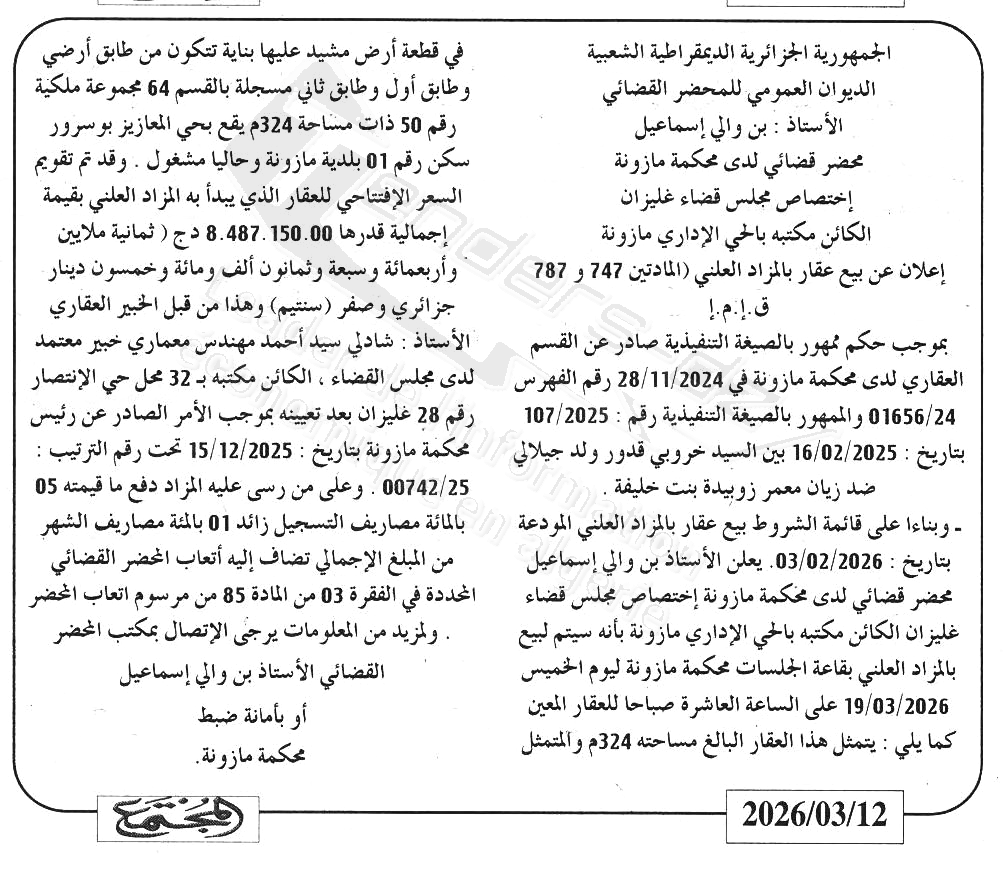 الجمهورية الجزائرية الديمقراطية الشعبية
الديوان العمومي للمحضر القضائي
الأستاذ : بن والي إسماعيل
محضر قضائي لدى محكمة مازونة
إختصاص مجلس قضاء غليزان
الكائن مكتبه بالحي الإداري مازونة
إعلان عن بيع عقار بالمزاد العلني (المادتين 747 و 787
ق.إ.م.إ
بموجب حكم ممهور بالصيغة التنفيذية صادر عن القسم
العقاري لدى محكمة مازونة في 28/11/2024 رقم الفهرس
01656/24 والممهور بالصيغة التنفيذية رقم : 107/2025
بتاريخ : 16/02/2025 بين السيد خروبي قدور ولد جيلالي
ضد زيان معمر زوبيدة بنت خليفة .
ـ وبناءا على قائمة الشروط بيع عقار بالمزاد العلني المودعة
بتاريخ : 03/02/2026. يعلن الأستاذ بن والي إسماعيل
محضر قضائي لدى محكمة مازونة إختصاص مجلس قضاء
غليزان الكائن مكتبه بالحي الإداري مازونة بأنه سيتم لبيع
بالمزاد العلني بقاعة الجلسات محكمة مازونة ليوم الخميس
19/03/2026 على الساعة العاشرة صباحا للعقار المعين
كما يلي : يتمثل هذا العقار البالغ مساحته 324م والمتمثل
في قطعة أرض مشيد عليها بناية تتكون من طابق أرضي
وطابق أول وطابق ثاني مسجلة بالقسم 64 مجموعة ملكية
رقم 50 ذات مساحة 324م يقع بحي المعازيز بوسرور
سكن رقم 01 بلدية مازونة وحاليا مشغول . وقد تم تقويم
السعر الإفتتاحي للعقار الذي يبدأ به المزاد العلني بقيمة
إجمالية قدرها 8.487.150.00 دج ( ثمانية ملايين
وأربعمائة وسبعة وثمانون ألف ومائة وخمسون دينار
جزائري وصفر (سنتيم) وهذا من قبل الخبير العقاري
الأستاذ : شادلي سيد أحمد مهندس معماري خبير معتمد
لدى مجلس القضاء ، الكائن مكتبه بـ 32 محل حي الإنتصار
رقم 28 غليزان بعد تعيينه بموجب الأمر الصادر عن رئيس
محكمة مازونة بتاريخ : 15/12/2025 تحت رقم الترتيب :
00742/25 . وعلى من رسى عليه المزاد دفع ما قيمته 05
بالمائة مصاريف التسجيل زائد 01 بالمئة مصاريف الشهر
من المبلغ الإجمالي تضاف إليه أتعاب المحضر القضائي
المحددة في الفقرة 03 من المادة 85 من مرسوم اتعاب المحضر
. ولمزيد من المعلومات يرجى الإتصال بمكتب المحضر
القضائي الأستاذ بن والي إسماعيل
أو بأمانة ضبط
محكمة مازونة.
المجتمع
2026/03/12